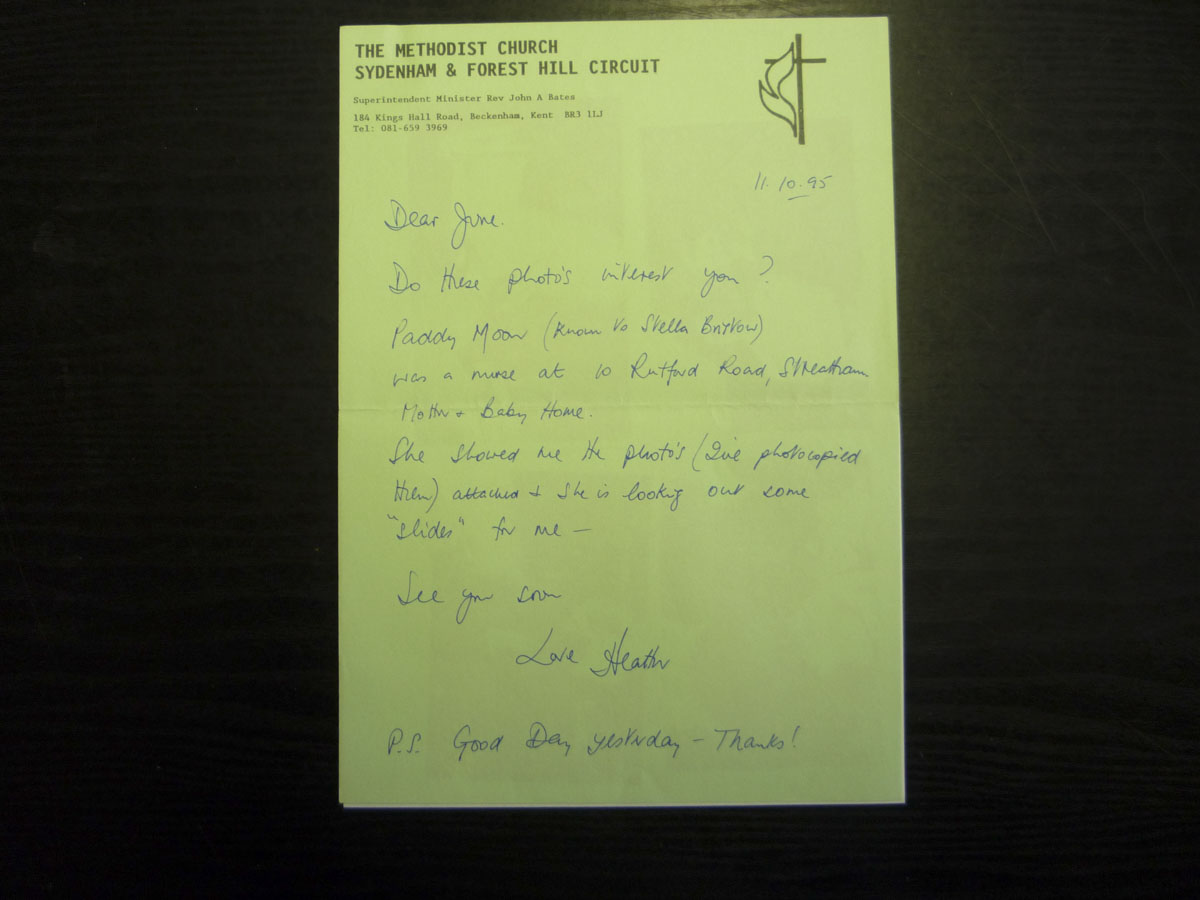 THE METHODIST CHURCH
SYDENHAM & FOREST HILL CIRCUIT
Superintendent Minister Rev John A Bates
184 Kings Hall Road, Beckenham, Kent BR3 1LJ
Tel: 081-659 3969
11.10.95
Dear June.
Do these photo's interest you?
Paddy Moon (known to Stella Bristow)
was a nurse at 10 Rutford Road, Streatham
Mother + Baby Home.
She showed me the photo's (I've photocopied
them) attached & she is looking out some
"slides" for me —
See you soon
Love Heather
P.S. Good Day yesterday - Thanks!